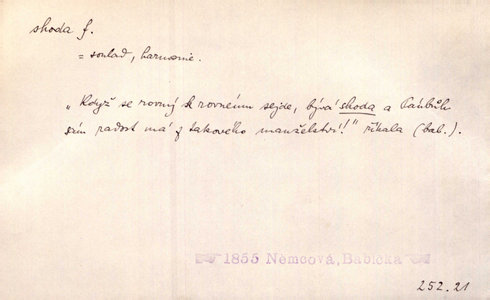 shoda f.
= soulad, harmonie.
„Když se rovný k rovnému sejde, bývá shoda a Pánbůh
sám radost má z takového manželství!" říkala (bab.).
1855 Němcová, Babička
252.21